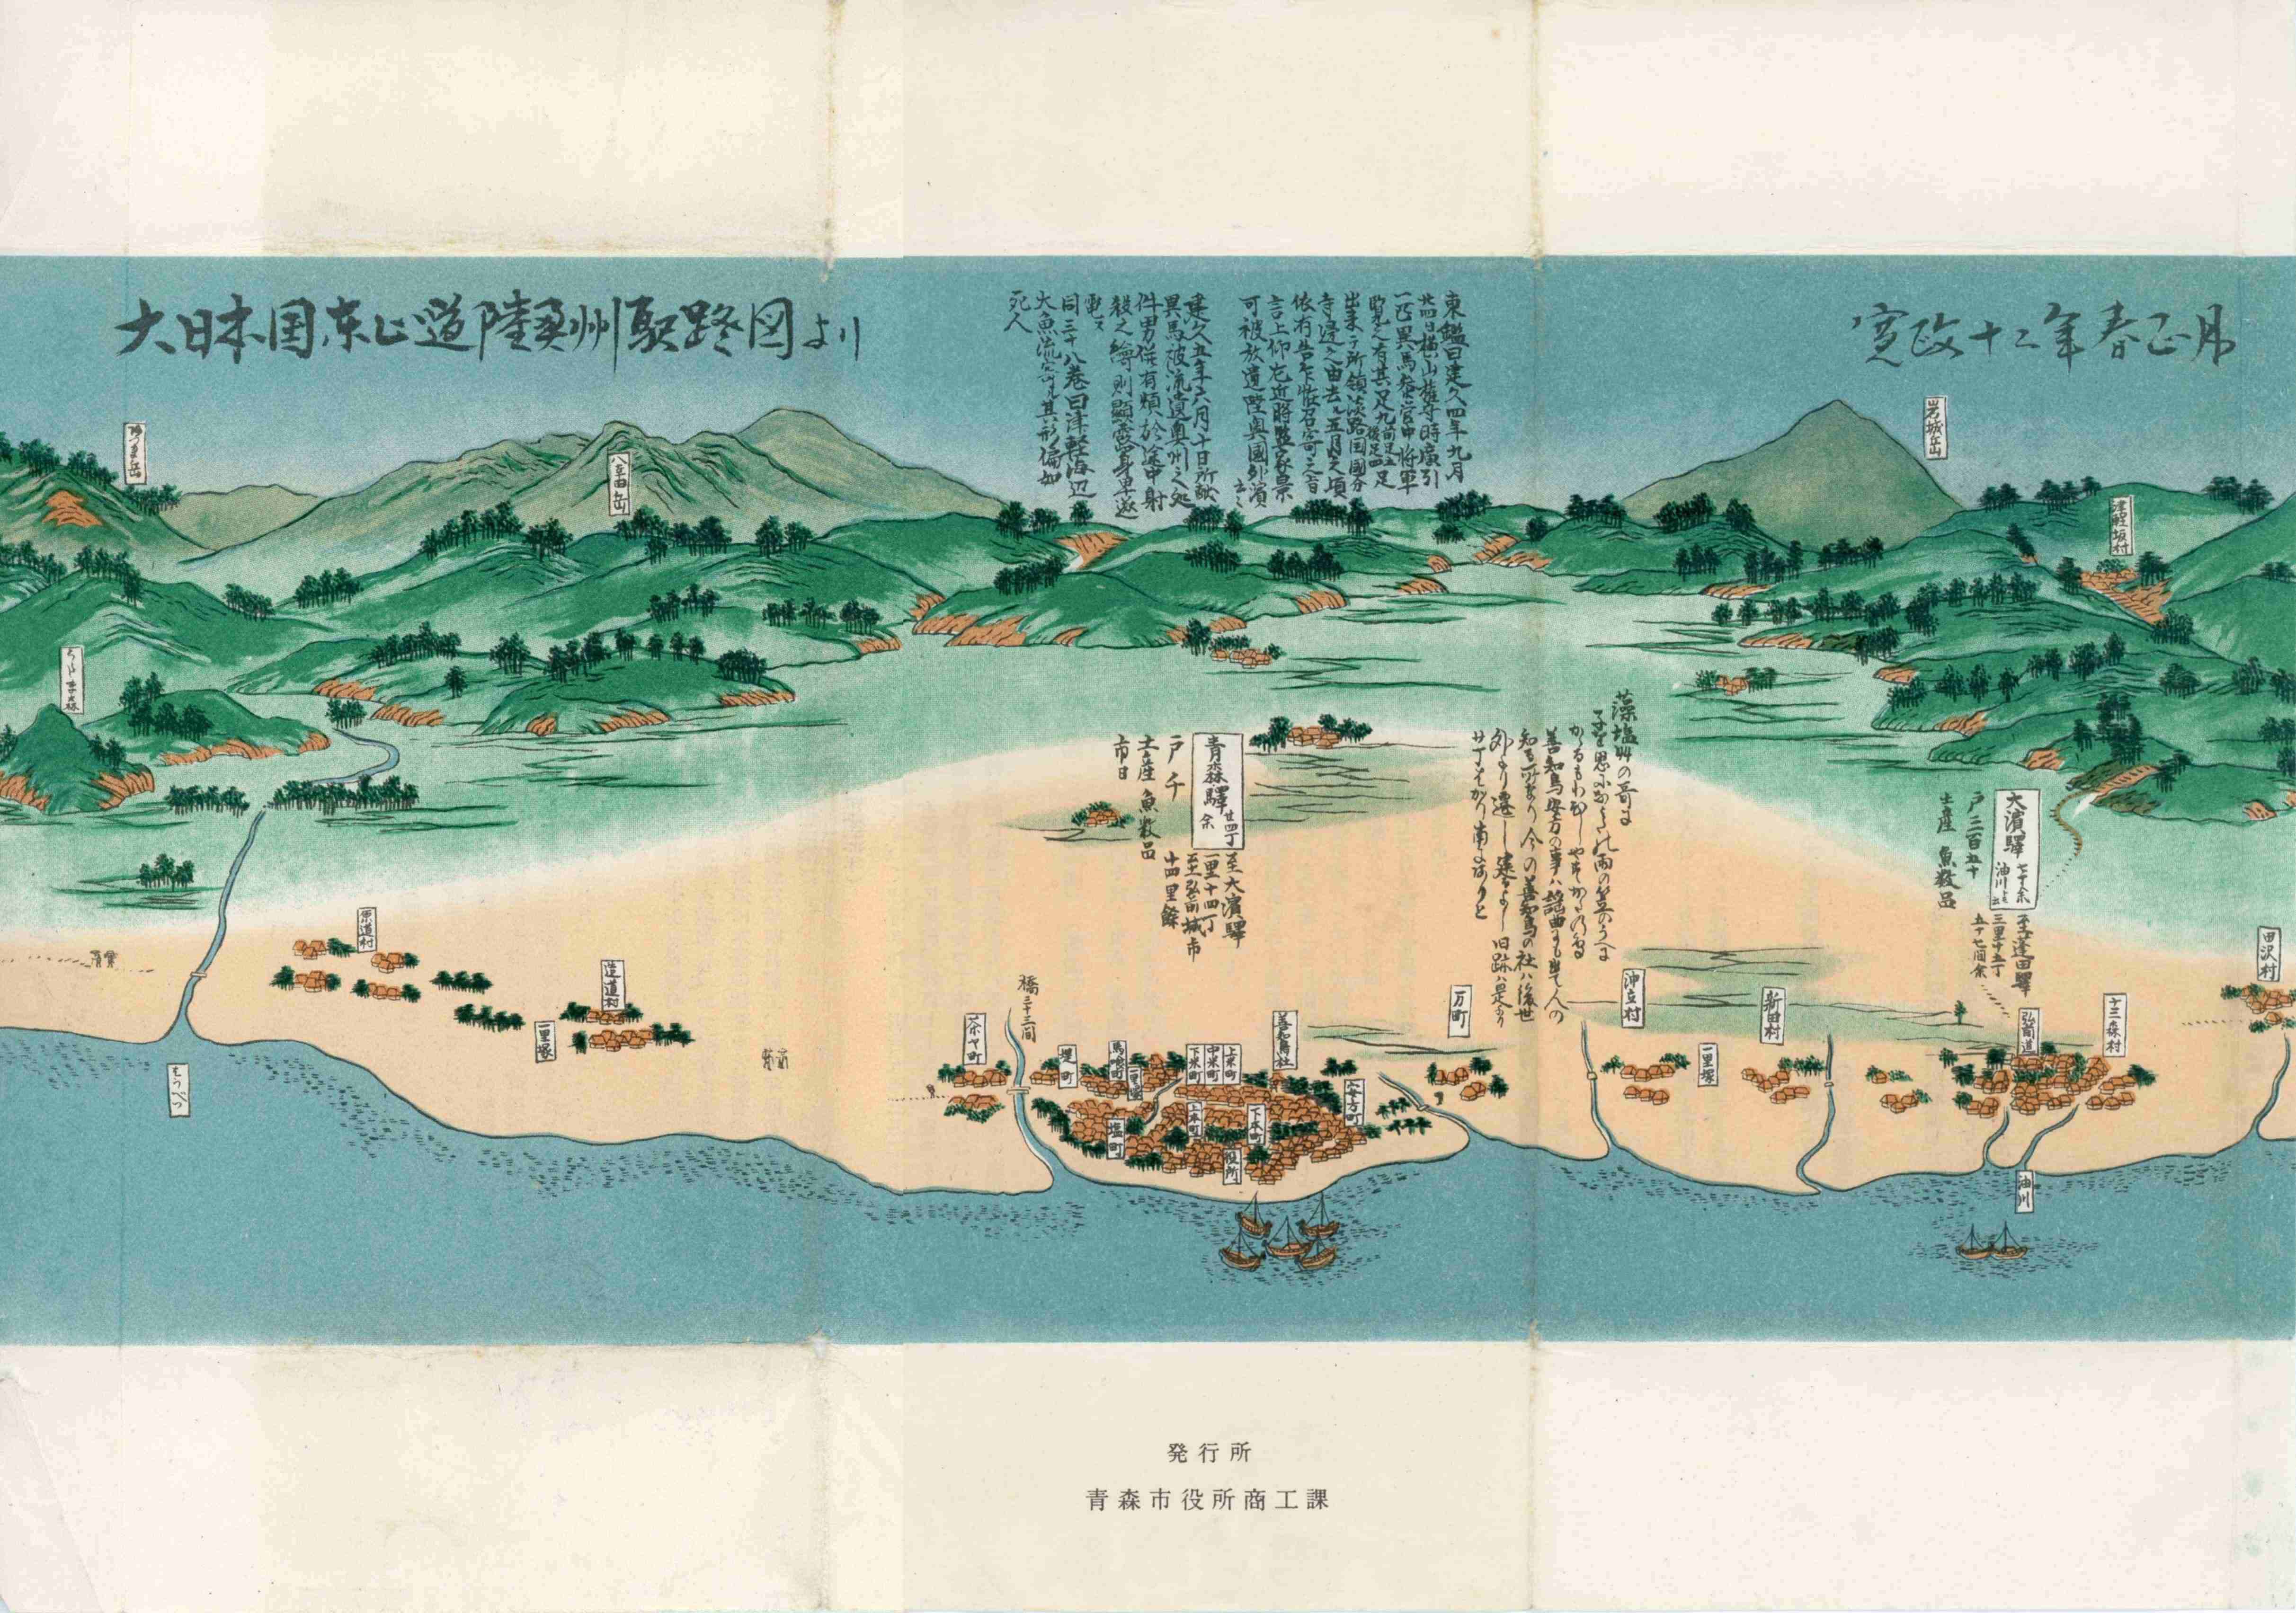 寛政十二年春正月
大日本国東山道陸奥州駅路図より
東鑑曰建久四年九月
廿四日横山権守時廣引
一匹異馬参営中将軍
覧之有其足九前足五後足四足
出来于所領淡路国國分
寺邊之由去五月之頃
依有告乍恠召寄之旨
言上仰左近将監家景
可被放遣陸奥国外濱
云々
建久五年六月十日所献
異馬被流遣奥州之処
件男併有煩於途中射
殺之
同三十八巻曰津軽海辺
大魚流寄其形偏如
死人
岩城岳
津軽坂村
八甲田岳
青森驛 廿四丁余
至大濱驛
一里十四丁
至弘前城市
十四里餘
戸千
土産 魚数品
市日
藻塩艸の哥に
善知鳥安方の事ハ謡曲にも出て人の
知る所なり今の善知鳥の社ハ後世
外より遷し建るよし旧跡ハ是より
大濱驛
油川とも云
至蓬田驛
三里廿五丁
五十七間余
戸三百五十
土産 魚数品
田沢村
十三森村
弘前道
油川
新田村
一里塚
沖立村
万町
安方町
善知鳥社
上米町
中米町
下米町
上本町
下本町
役所
馬喰町
一里塚
塩町
堤町
橋三十三間
茶ヤ町
造道村
一里塚
原道村
発行所
青森市役所商工課